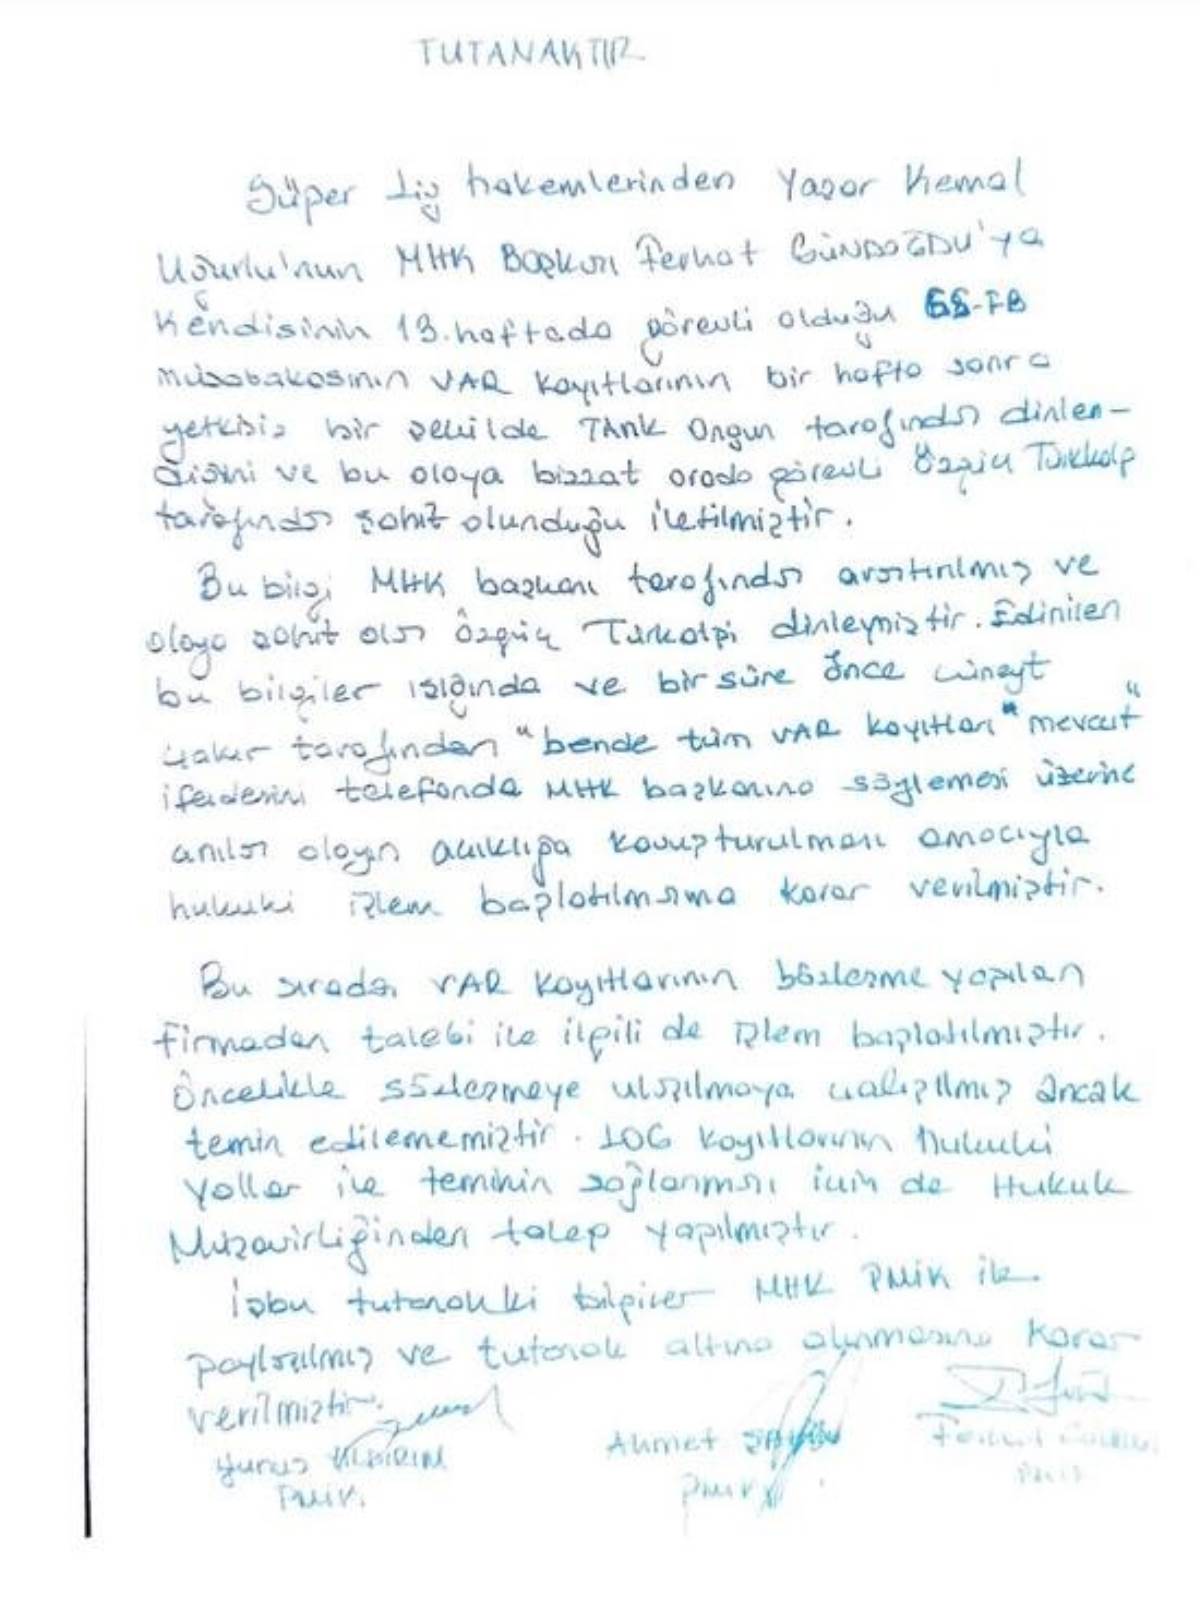 TUTANAKTIR
Süper Lig hakemlerinden Yaşar Kemal
Uğurlu'nun MHK Başkanı Ferhat GÜNDOĞDU'ya
Kendisinin 13.haftada görevli olduğu GS-FB
müsabakasının VAR kayıtlarının bir hafta sonra
yetkisiz bir şekilde TARIK Ongun tarafından dinlen-
diğini ve bu olaya bizzat orada görevli Özgüç Türkalp
tarafından şahit olunduğu iletilmiştir.
Bu bilgi MHK başkanı tarafından araştırılmış ve
olaya şahit olan Özgüç Türkalpi dinlemiştir. Edinilen
bu bilgiler ışığında ve bir süre önce Cüneyt
Çakır tarafından "bende tüm VAR kayıtları" mevcut"
ifadesini telefonda MHK başkanına söylemesi üzerine
anılan olayın açıklığa kavuşturulması amacıyla
hukuki işlem başlatılmasına karar verilmiştir.
Bu sırada VAR kayıtlarının sözleşme yapılan
firmadan talebi ile ilgili de işlem başlatılmıştır.
Öncelikle sözleşmeye ulaşılmaya çalışılmış ancak
temin edilememiştir. LOG kayıtlarının hukuki
yollar ile teminin sağlanması için de Hukuk
Müşavirliğinden talep yapılmıştır.
İşbu tutanaktaki bilgiler MHK PMİK ile
paylaşılmış ve tutanak altına alınmasına karar
verilmiştir.
Yunus YILDIRIM
PMİK.
Ahmet ŞAHİN
PMİK